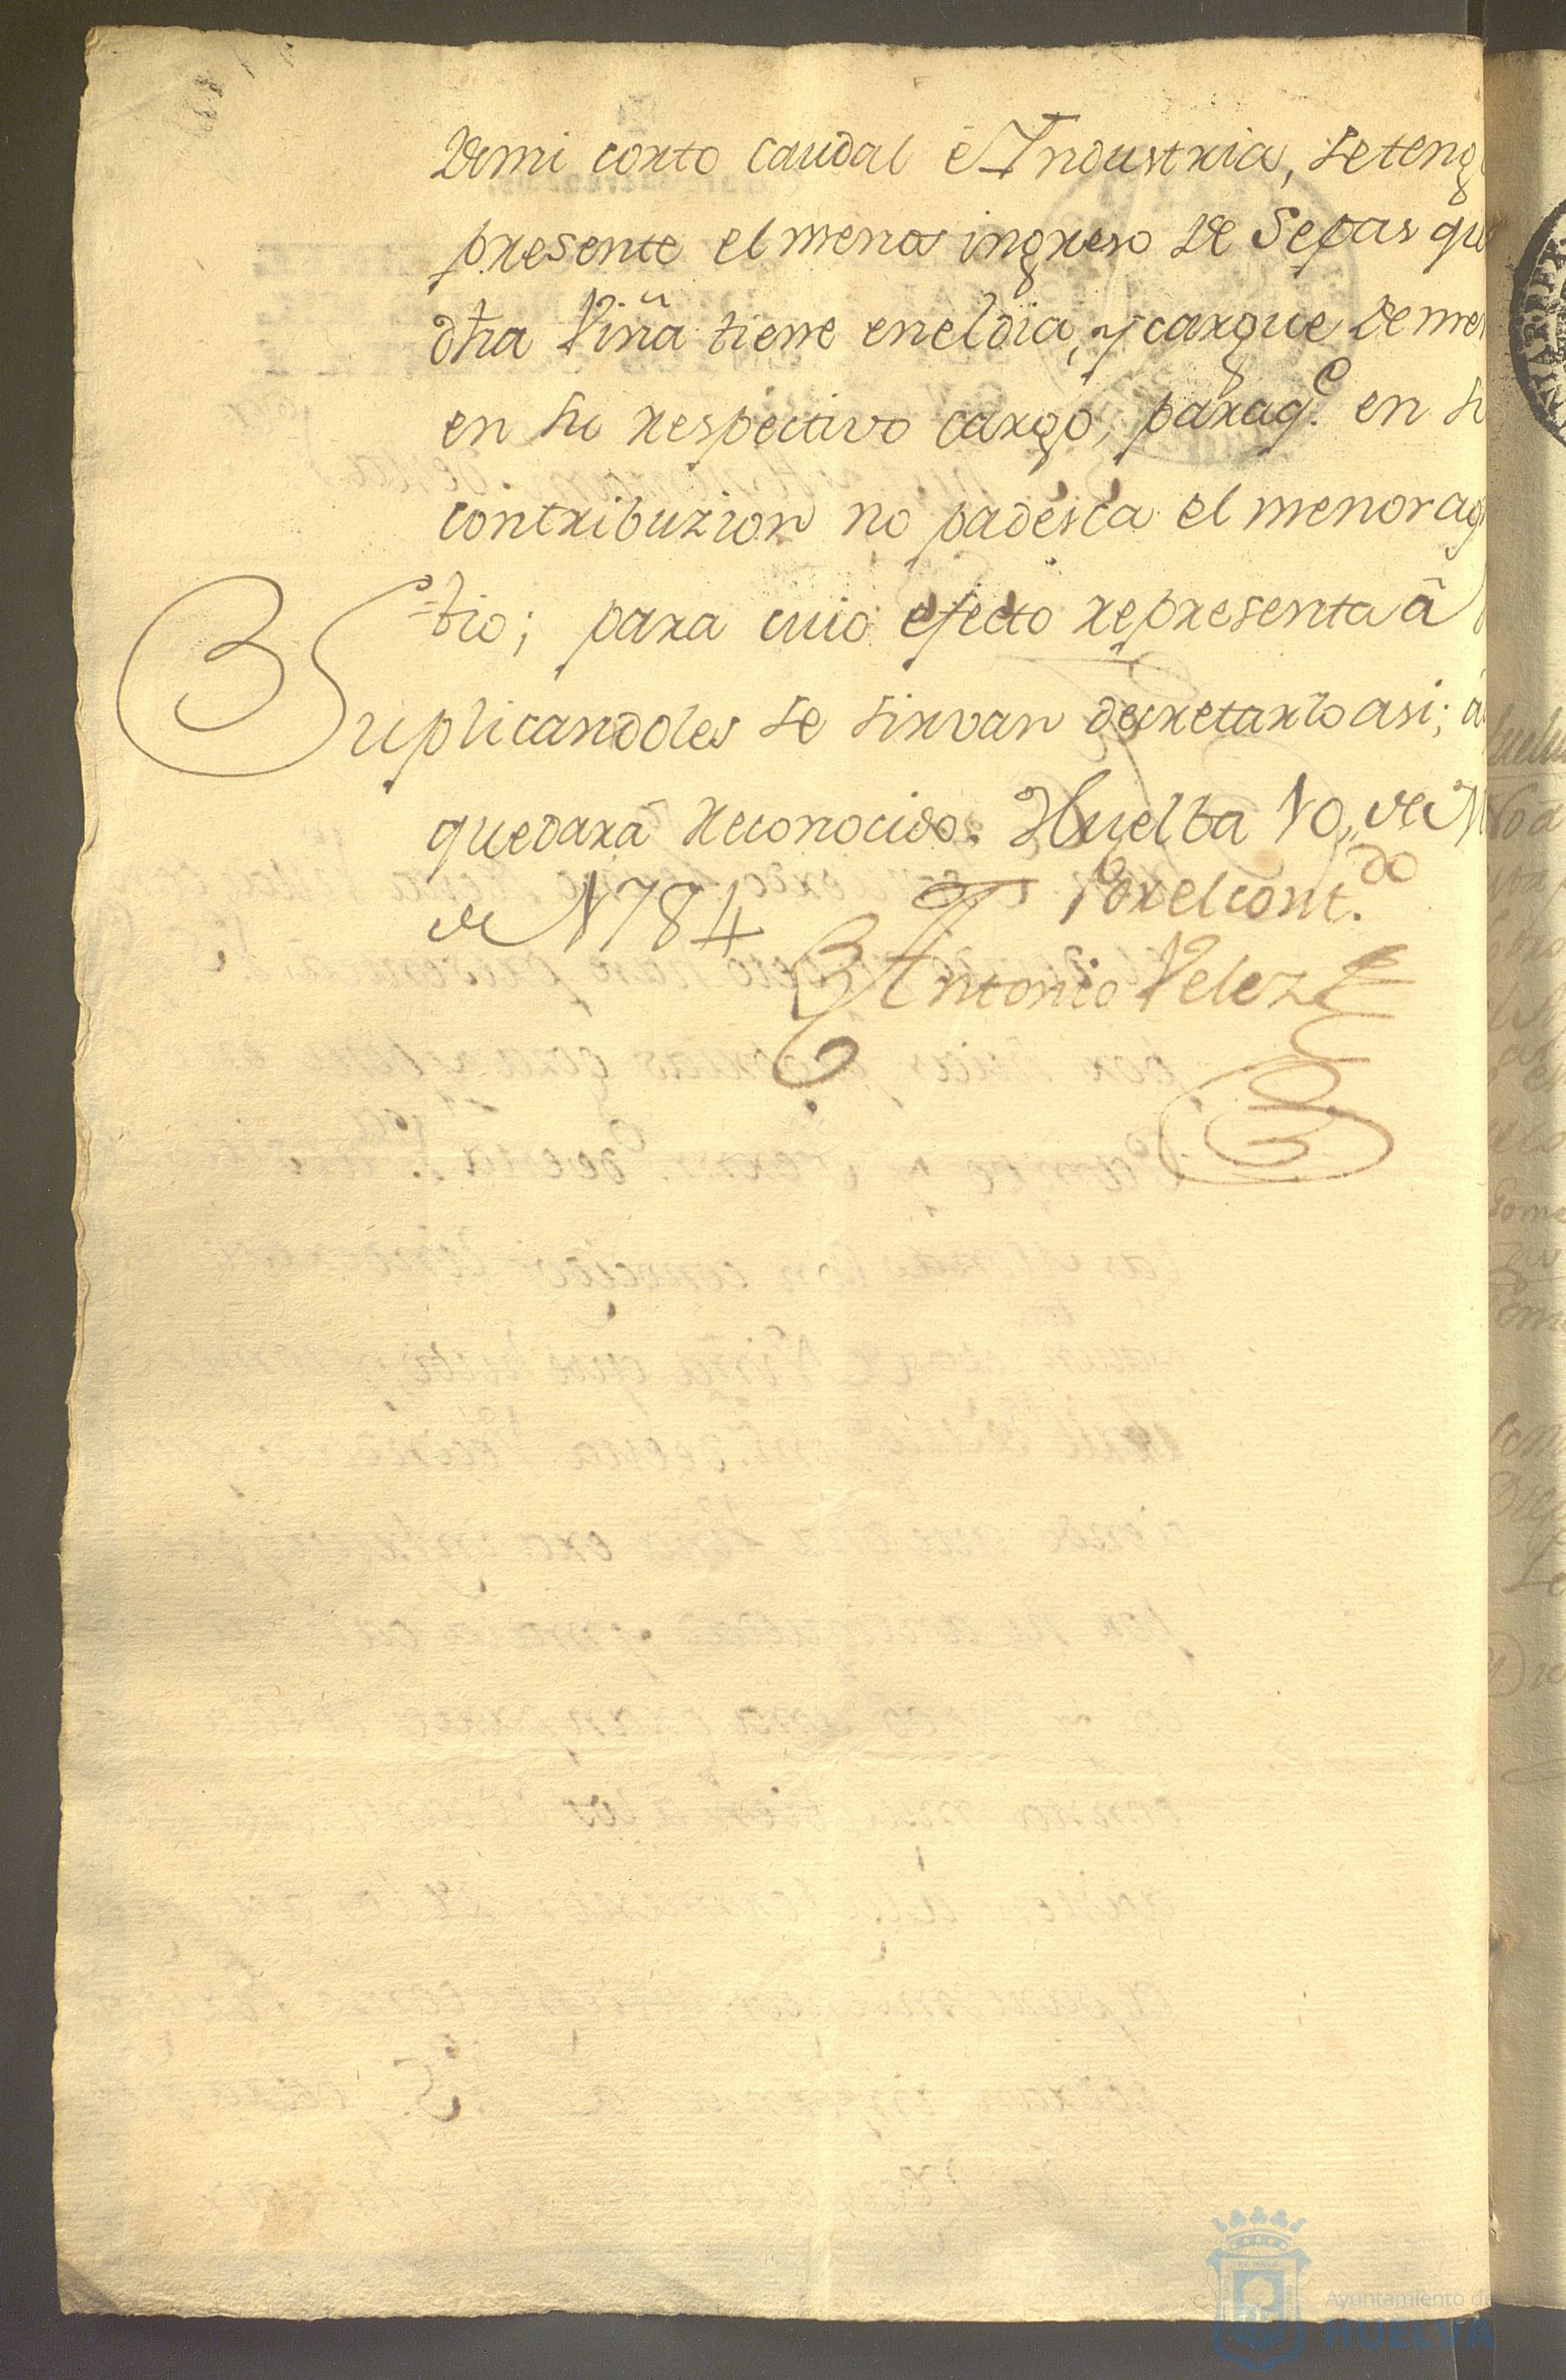 de mi corto caudal é Industria, se teng
presente el menos ingreso de Sepas que
dha Viña tiene en el dia, y cargue de men
en su respectivo cargo, para q.e en su
contribuzion no padesca el menor ag
bio; para cuio efecto representa â
Suplicandoles se sirvan decretarlo asi; á
quedará reconocido. Huelba 10,, de M
de 1784
Por el cont.do
Antonio Velez
Ayuntamiento de
HUELVA